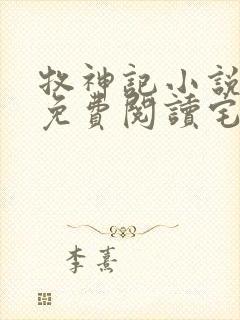 牧神記小說
免費閱讀宅
李熹